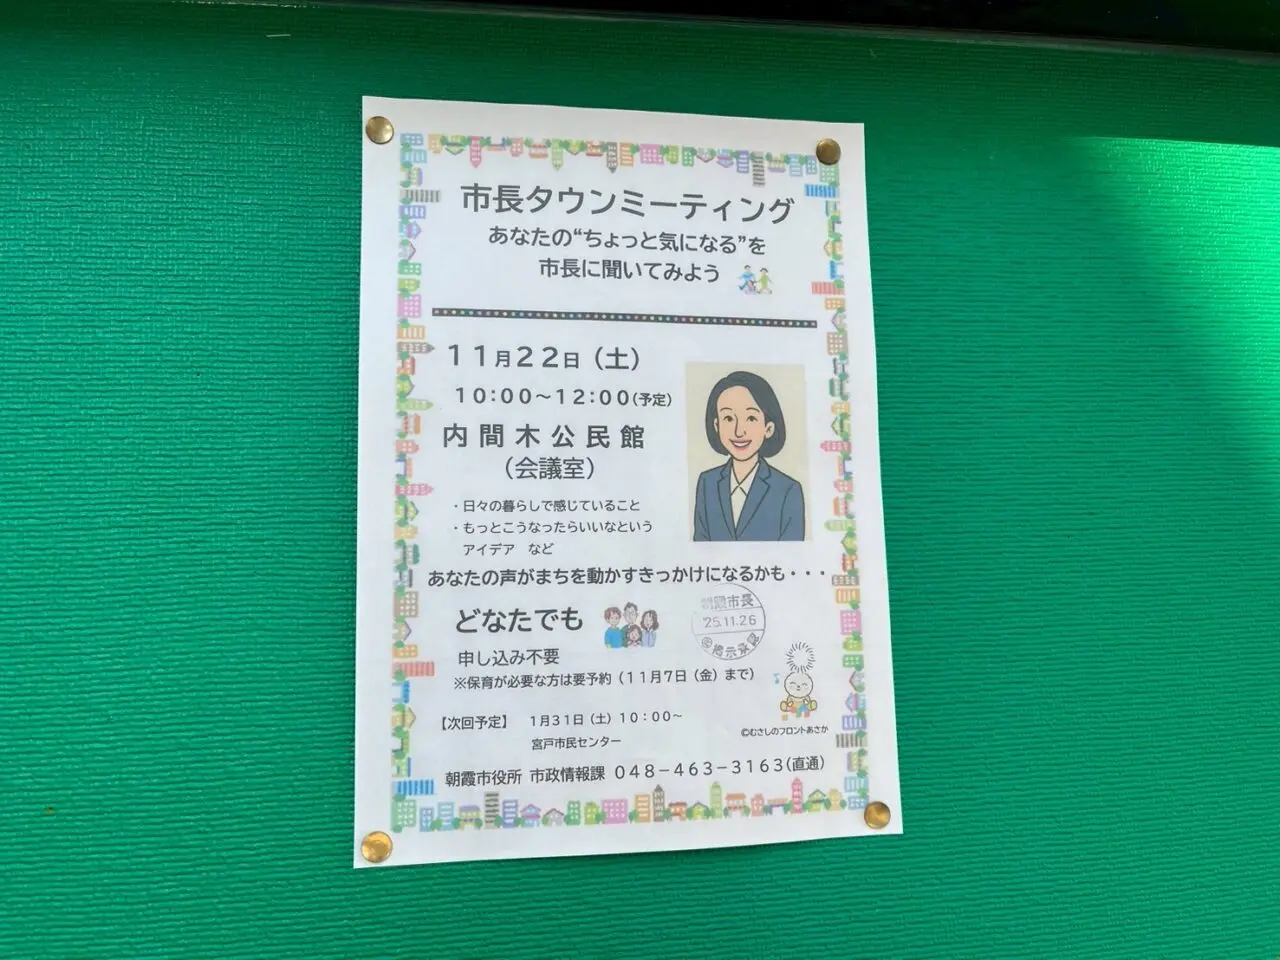 市長タウンミーティング
あなたの“ちょっと気になる”を
市長に聞いてみよう
11月22日（土）
10:00～12:00(予定)
内間木公民館
（会議室）
・日々の暮らしで感じていること
・もっとこうなったらいいなという
アイデア　など
あなたの声がまちを動かすきっかけになるかも・・・
どなたでも
朝霞市長
'25.11.26
掲示承認
申し込み不要
※保育が必要な方は要予約（11月7日（金）まで）
【次回予定】　1月31日（土）10:00～
宮戸市民センター
©むさしのフロントあさか
朝霞市役所 市政情報課 048－463－3163(直通)